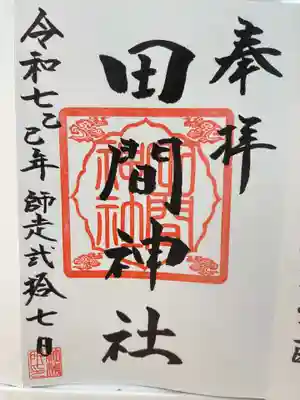 奉拝
田間神社
令和七乙巳年師走弐拾七日